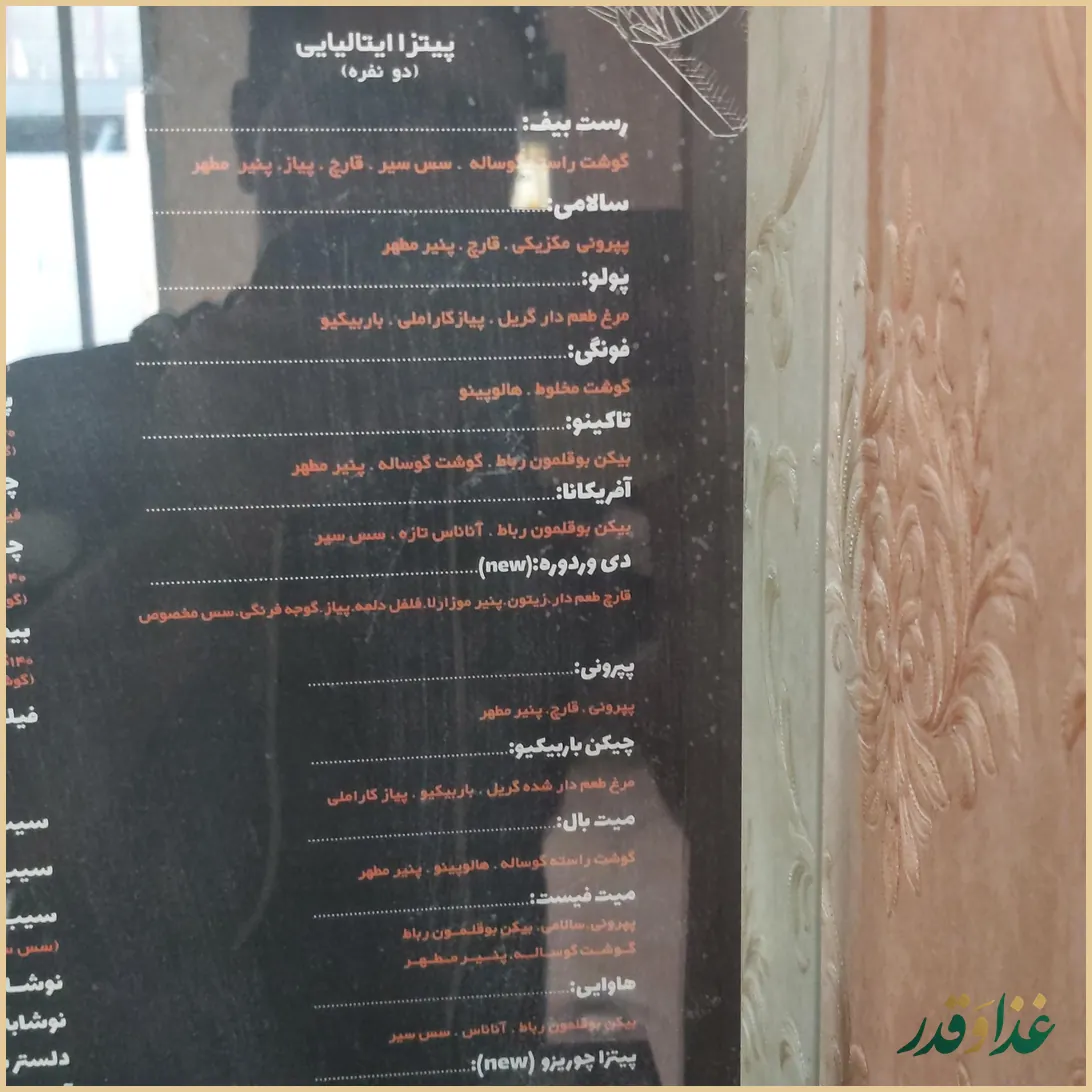 پیتزا ایتالیایی
(دو نفره)
رست بیف:
گوشت راسته گوساله . سس سیر . قارچ . پیاز. پنیر مطهر
سالامی:
پپرونی مکزیکی . قارچ . پنیر مطهر
پولو:
مرغ طعم دار گریل . پیازکاراملی . باربیکیو
فونگی:
گوشت مخلوط . هالوپینو
تاکینو:
بیکن بوقلمون رباط . گوشت گوساله . پنیر مطهر
آفریکانا:
بیکن بوقلمون رباط . آناناس تازه . سس سیر
دی وردوره:(new)
قارچ طعم دار.زیتون.پنیر موزارلا.فلفل دلمه.پیاز.گوجه فرنگی.سس مخصوص
پپرونی:
پپرونی . قارچ.پنیر مطهر
چیکن باربیکیو:
مرغ طعم دار شده گریل . باربیکیو . پیاز کاراملی
میت بال:
گوشت راسته گوساله . هالوپینو . پنیر مطهر
میت فیست:
پپرونی.سالامی. بیکن بوقلمون رباط
گوشت گوساله. پنیر مطهر
هاوایی:
بیکن بوقلمون رباط . آناناس . سس سیر
پیتزا چوریزو (new):
نوشابه
دلستر
غذا و قدر